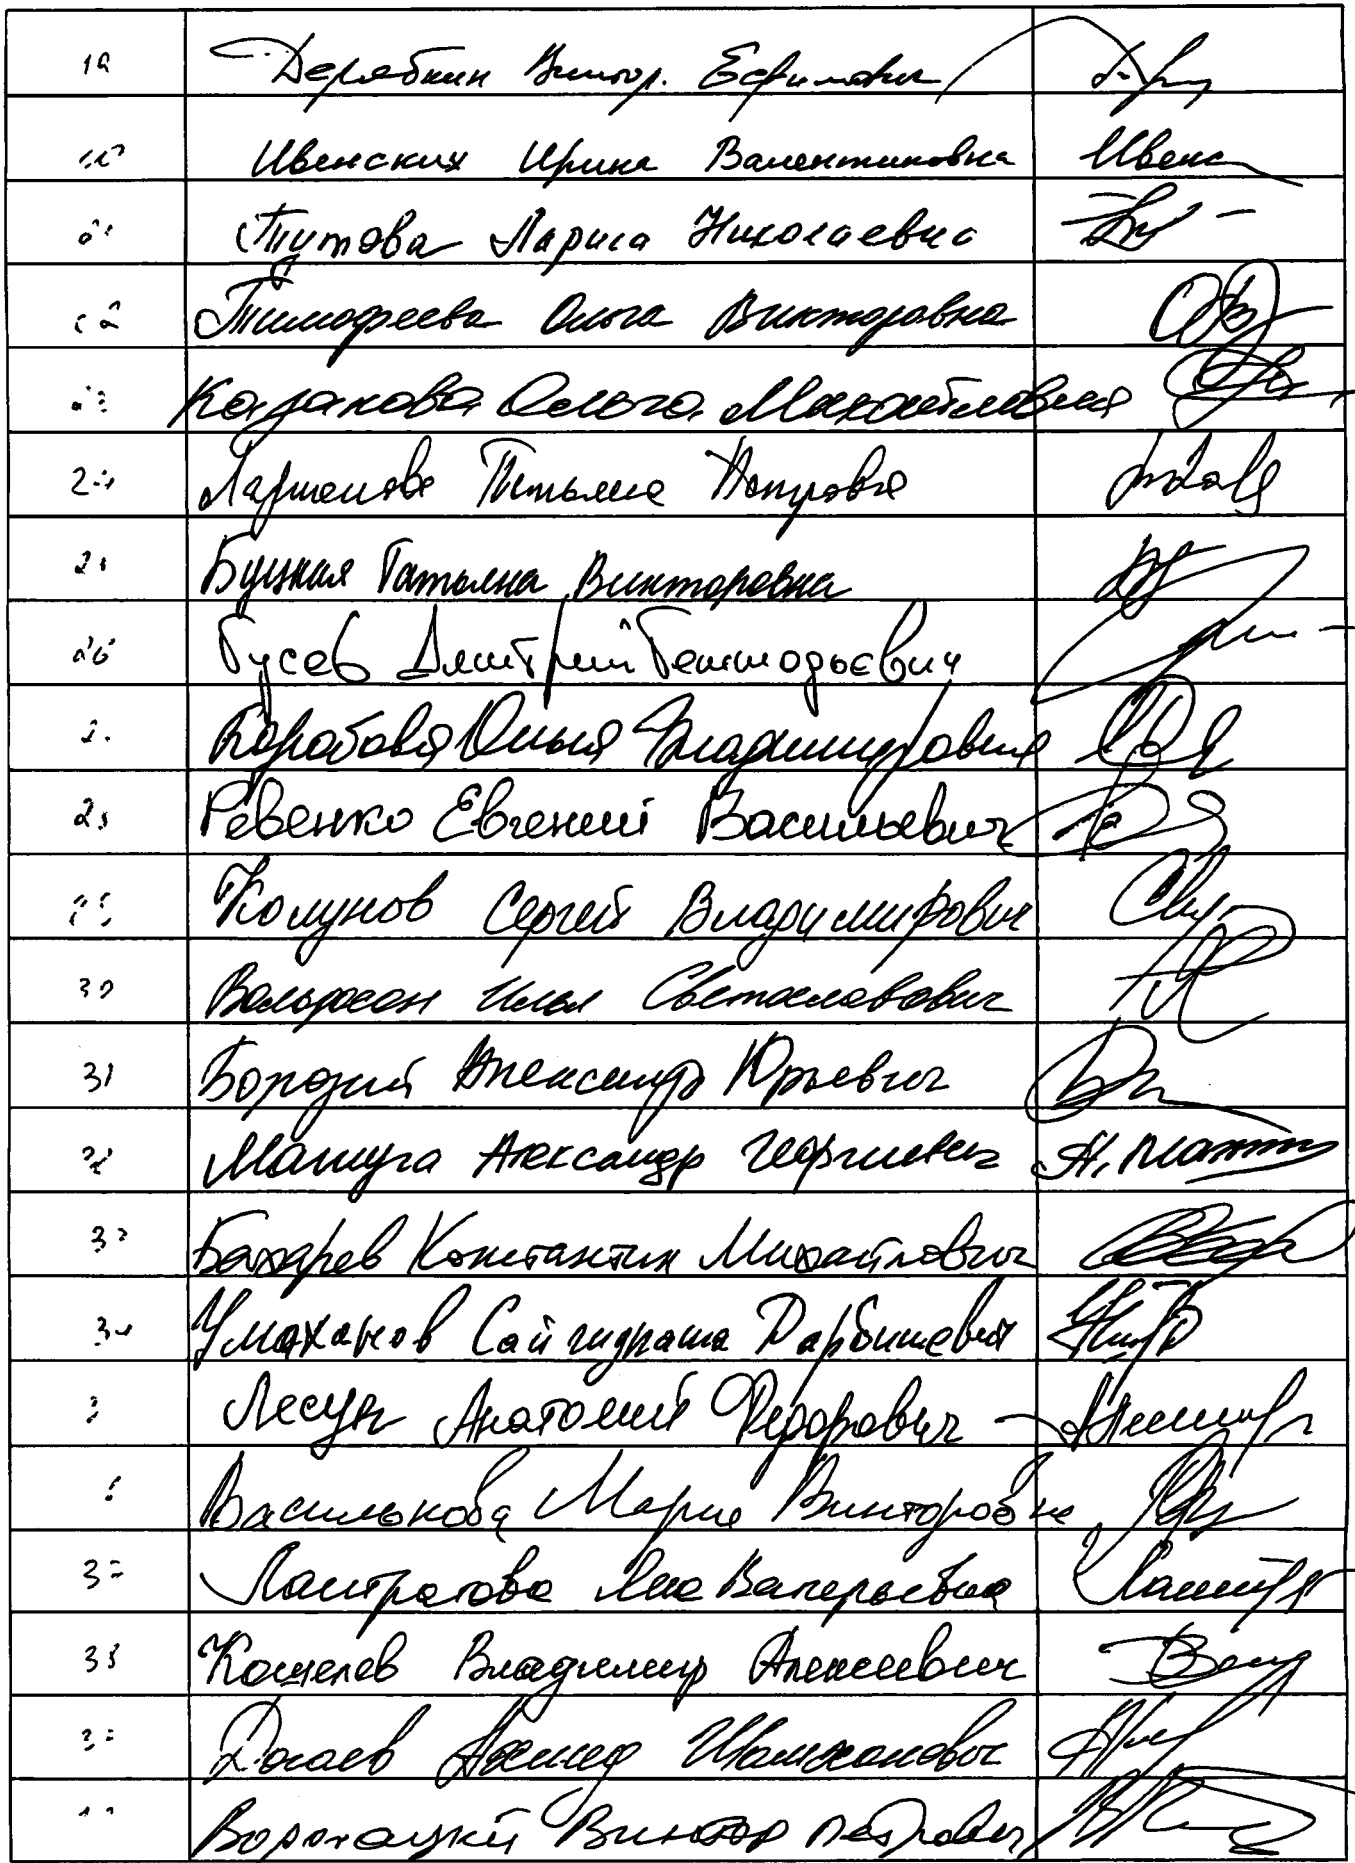 19 Дерябкин Виктор. Ефимович
Ивенских Ирина Валентиновна Ивенс
Тутова Лариса Николаевна
Тимофеева Ольга Викторовна
Казакова Ольга Михайловна
24 Ларионова Татьяна Петровна
Буцкая Татьяна Викторовна
26 Гусев Дмитрий Геннадьевич
Коробова Ольга Владимировна
Ревенко Евгений Васильевич
Колунов Сергей Владимирович
30 Вольфсон Илья Светославович
31 Бородай Александр Юрьевич
Мажуга Александр Георгиевич
Бахарев Константин Михайлович
34 Умаханов Сайгидпаша Дарбишевич
Лесун Анатолий Федорович
Василькова Мария Викторовна
Лантратова Яна Валерьевна
38 Кошелев Владимир Алексеевич
Догаев Ахмед Шамханович
Водолацкий Виктор Петрович